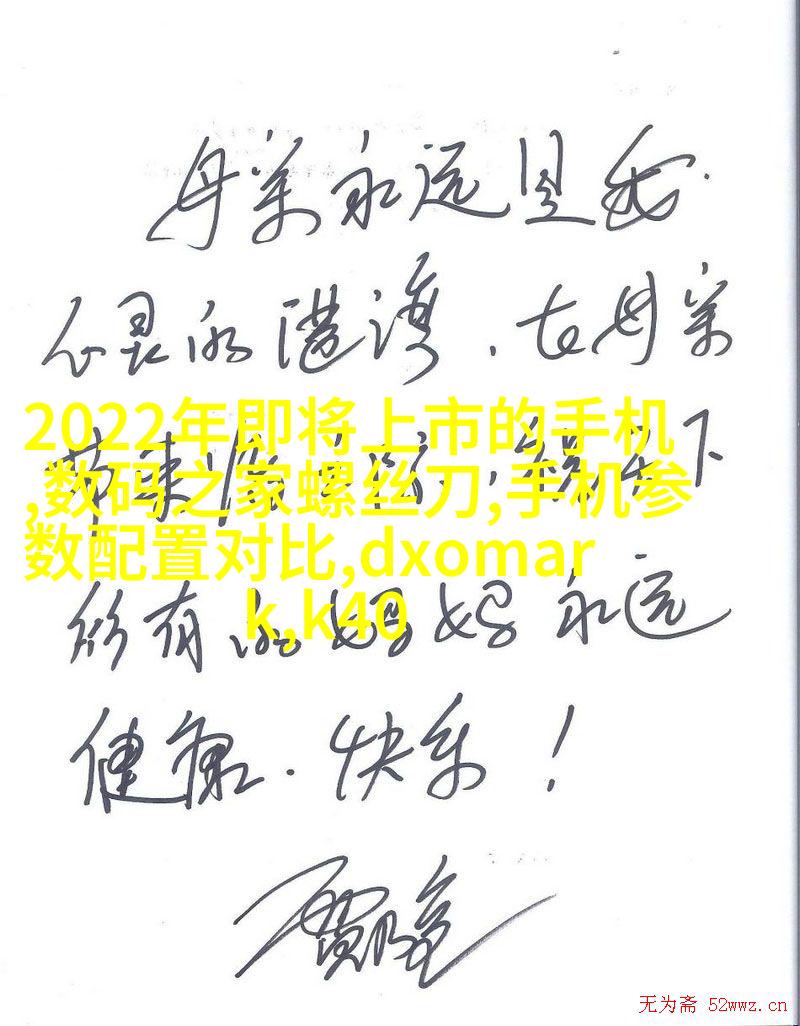 母亲永远是我
心灵的港湾，在母亲
节来临之际，祝天下
2022年即将上市的手机
,数码之家螺丝刀,手机参
数配置对比,dxomar
k,k40
所有的妈妈永远
健康．快乐！
无为斋 52wwz.cn